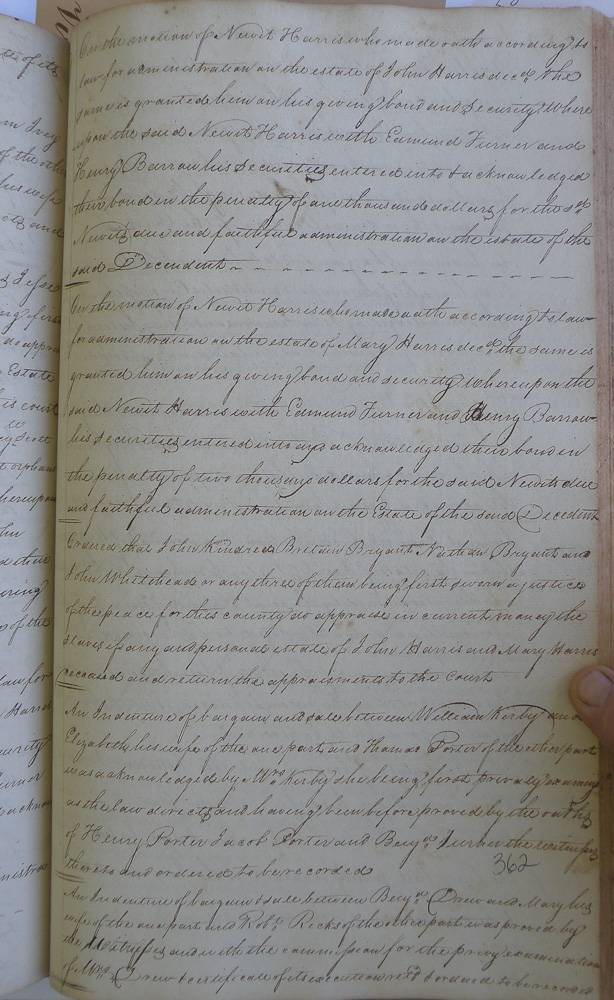 On the motion of Newit Harris who made oath according to
law for administration on the estate of John Harris decd. the
same is granted him on his giving bond and security. Where
upon the said Newit Harris with Edmund Turner and
Henry Barrow his securities entered into & acknowledged
their bond in the penalty of one thousand dollars for the sd.
Newits due and faithful administration on the estate of the
said Decendent
On the motion of Newit Harris who made oath according to law
for administration on the estate of Mary Harris decd. the same is
granted him on his giving bond and security whereupon the
said Newit Harris with Edmund Turner and Henry Barrow
his securities entered into and acknowledged their bond in
the penalty of two thousand dollars for the said Newits due
and faithful administration on the Estate of the said Decedent
Ordered that John Kindred Britain Bryant Nathan Bryant and
John Whitehead or any three of them being first sworn a justice
of the peace for this county do appraise in current money the
slaves if any and personal estate of John Harris and Mary Harris
deceased and return the appraisments to the Court
An Indenture of bargain and sale between William Kirby and
Elizabeth his wife of the one part and Thomas Porter of the other part
was acknowledged by Mrs. Kirby she being first privaly examined
as the law directs and having been before proved by the oaths
of Henry Porter Jacob Porter and Benja. Turner the witnesses
thereto and ordered to be recorded
362
An Indenture of bargain & sale between Benja. Drew and Mary his
wife of the one part and Robt. Ricks of the other part was proved by
the Witnesses and with the commission for the privy examination
of Mrs. Drew & certificate of its execution retd. & ordered to be recorded